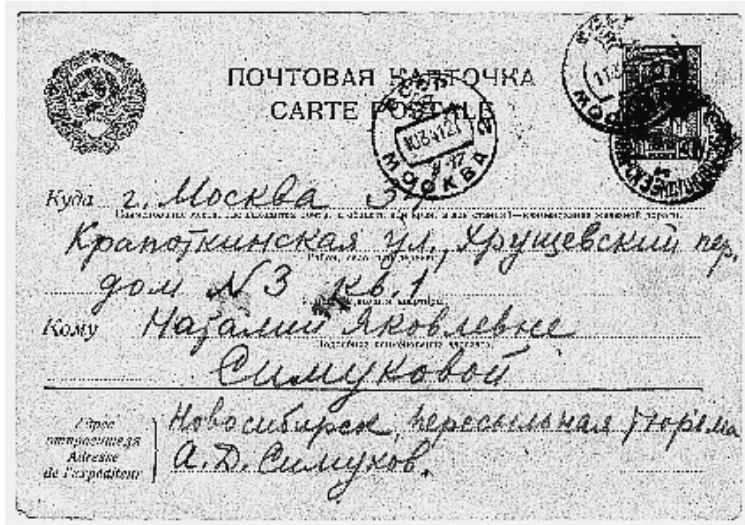 ПОЧТОВАЯ КАРТОЧКА
CARTE POSTALE
СССР
МОСКВА
МОСКВА
Куда г. Москва 34
Крапоткинская ул., Хрущевский пер.
дом № 3 кв. 1
Кому Наталии Яковлевне
Симуковой
Адрес отправителя
Adresse de l'expéditeur
Новосибирск, пересыльная тюрьма
А.Д. Симуков.